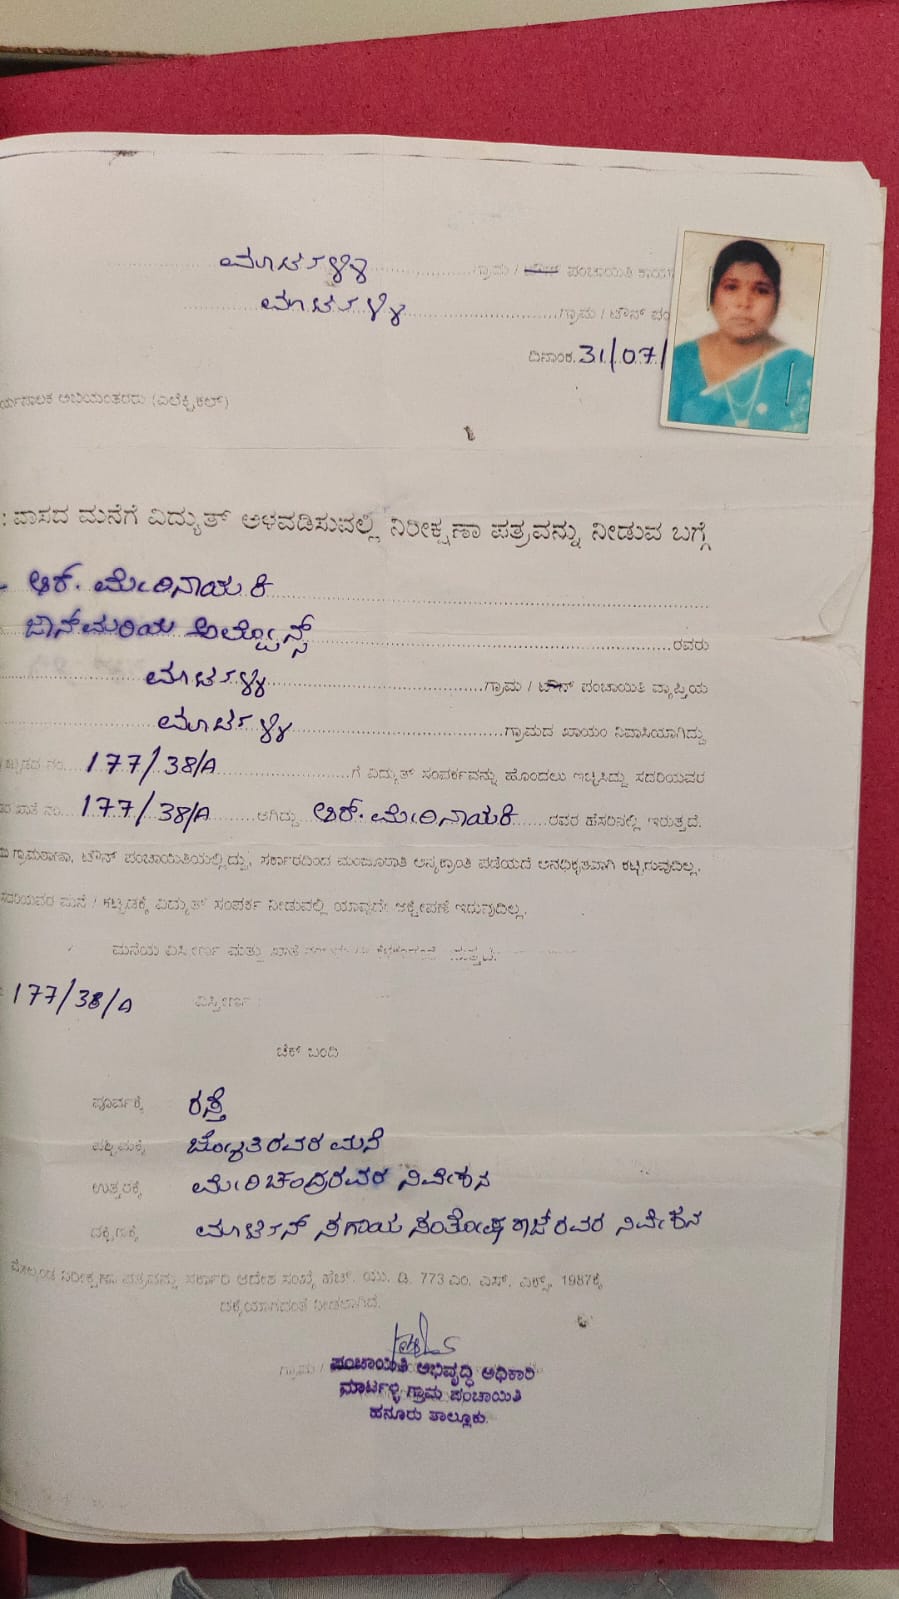 ಮಾರ್ಟಳ್ಳಿ ಗ್ರಾಮ / ಟೌನ್ ಪಂಚಾಯಿತಿ
ಮಾರ್ಟಳ್ಳಿ ಗ್ರಾಮ / ಟೌನ್
ದಿನಾಂಕ. 31/07/
ಅಭಿಯಂತರರು (ಎಲೆಕ್ಟ್ರಿಕಲ್)
: ವಾಸದ ಮನೆಗೆ ವಿದ್ಯುತ್ ಅಳವಡಿಸುವಲ್ಲಿ ನಿರೀಕ್ಷಣಾ ಪತ್ರವನ್ನು ನೀಡುವ ಬಗ್ಗೆ
ಆರ್. ಮೇರಿನಾಯಕಿ
ಜಾನ್ ಮರಿಯ ಅಲ್ಪೋನ್ಸ್ ರವರು
ಮಾರ್ಟಳ್ಳಿ ಗ್ರಾಮ / ಟೌನ್ ಪಂಚಾಯಿತಿ ವ್ಯಾಪ್ತಿಯ
ಮಾರ್ಟಳ್ಳಿ ಗ್ರಾಮದ ಖಾಯಂ ನಿವಾಸಿಯಾಗಿದ್ದು
ನಂ. 177/38/A ಗೆ ವಿದ್ಯುತ್ ಸಂಪರ್ಕವನ್ನು ಹೊಂದಲು ಇಚ್ಛಿಸಿದ್ದು ಸದರಿಯವರ
ಖಾತೆ ನಂ. 177/38/A ಆಗಿದ್ದು ಆರ್. ಮೇರಿನಾಯಕಿ ರವರ ಹೆಸರಿನಲ್ಲಿ ಇರುತ್ತದೆ.
ಟೌನ್ ಪಂಚಾಯಿತಿಯಲ್ಲಿದ್ದು, ಸರ್ಕಾರದಿಂದ ಮಂಜೂರಾತಿ ಅನ್ಯಕ್ರಾಂತಿ ಪಡೆಯದೆ ಅನಧಿಕೃತವಾಗಿ ಕಟ್ಟಿರುವುದಿಲ್ಲ.
ಸದರಿಯವರ ಮನೆ / ಕಟ್ಟಡಕ್ಕೆ ವಿದ್ಯುತ್ ಸಂಪರ್ಕ ನೀಡುವಲ್ಲಿ ಯಾವುದೇ ಆಕ್ಷೇಪಣೆ ಇರುವುದಿಲ್ಲ.
ಮನೆಯ ವಿಸ್ತೀರ್ಣ ಮತ್ತು ಖಾತೆ
177/38/A ವಿಸ್ತೀರ್ಣ :
ಚೆಕ್ ಬಂದಿ
ಪೂರ್ವಕ್ಕೆ ರಸ್ತೆ
ಪಶ್ಚಿಮಕ್ಕೆ ಜ್ಯೋತಿರವರ ಮನೆ
ಉತ್ತರಕ್ಕೆ ಮೇರಿಚಂದ್ರರವರ ನಿವೇಶನ
ದಕ್ಷಿಣಕ್ಕೆ ಮಾರ್ಟಿನ್ ಸಗಾಯ ಸಂತೋಷ ರಾಜ್ ರವರ ನಿವೇಶನ
ಮೇಲ್ಕಂಡ ನಿರೀಕ್ಷಣಾ ಪತ್ರವನ್ನು ಸರ್ಕಾರಿ ಆದೇಶ ಸಂಖ್ಯೆ ಹೆಚ್. ಯು. ಡಿ. 773 ಎಂ. ಎಸ್. ಎಕ್ಸ್. 1987ಕ್ಕೆ
ದಕ್ಕೆಯಾಗದಂತೆ ನೀಡಲಾಗಿದೆ.
ಗ್ರಾಮ /
ಪಂಚಾಯಿತಿ ಅಭಿವೃದ್ಧಿ ಅಧಿಕಾರಿ
ಮಾರ್ಟಳ್ಳಿ ಗ್ರಾಮ ಪಂಚಾಯಿತಿ
ಹನೂರು ತಾಲ್ಲೂಕು.